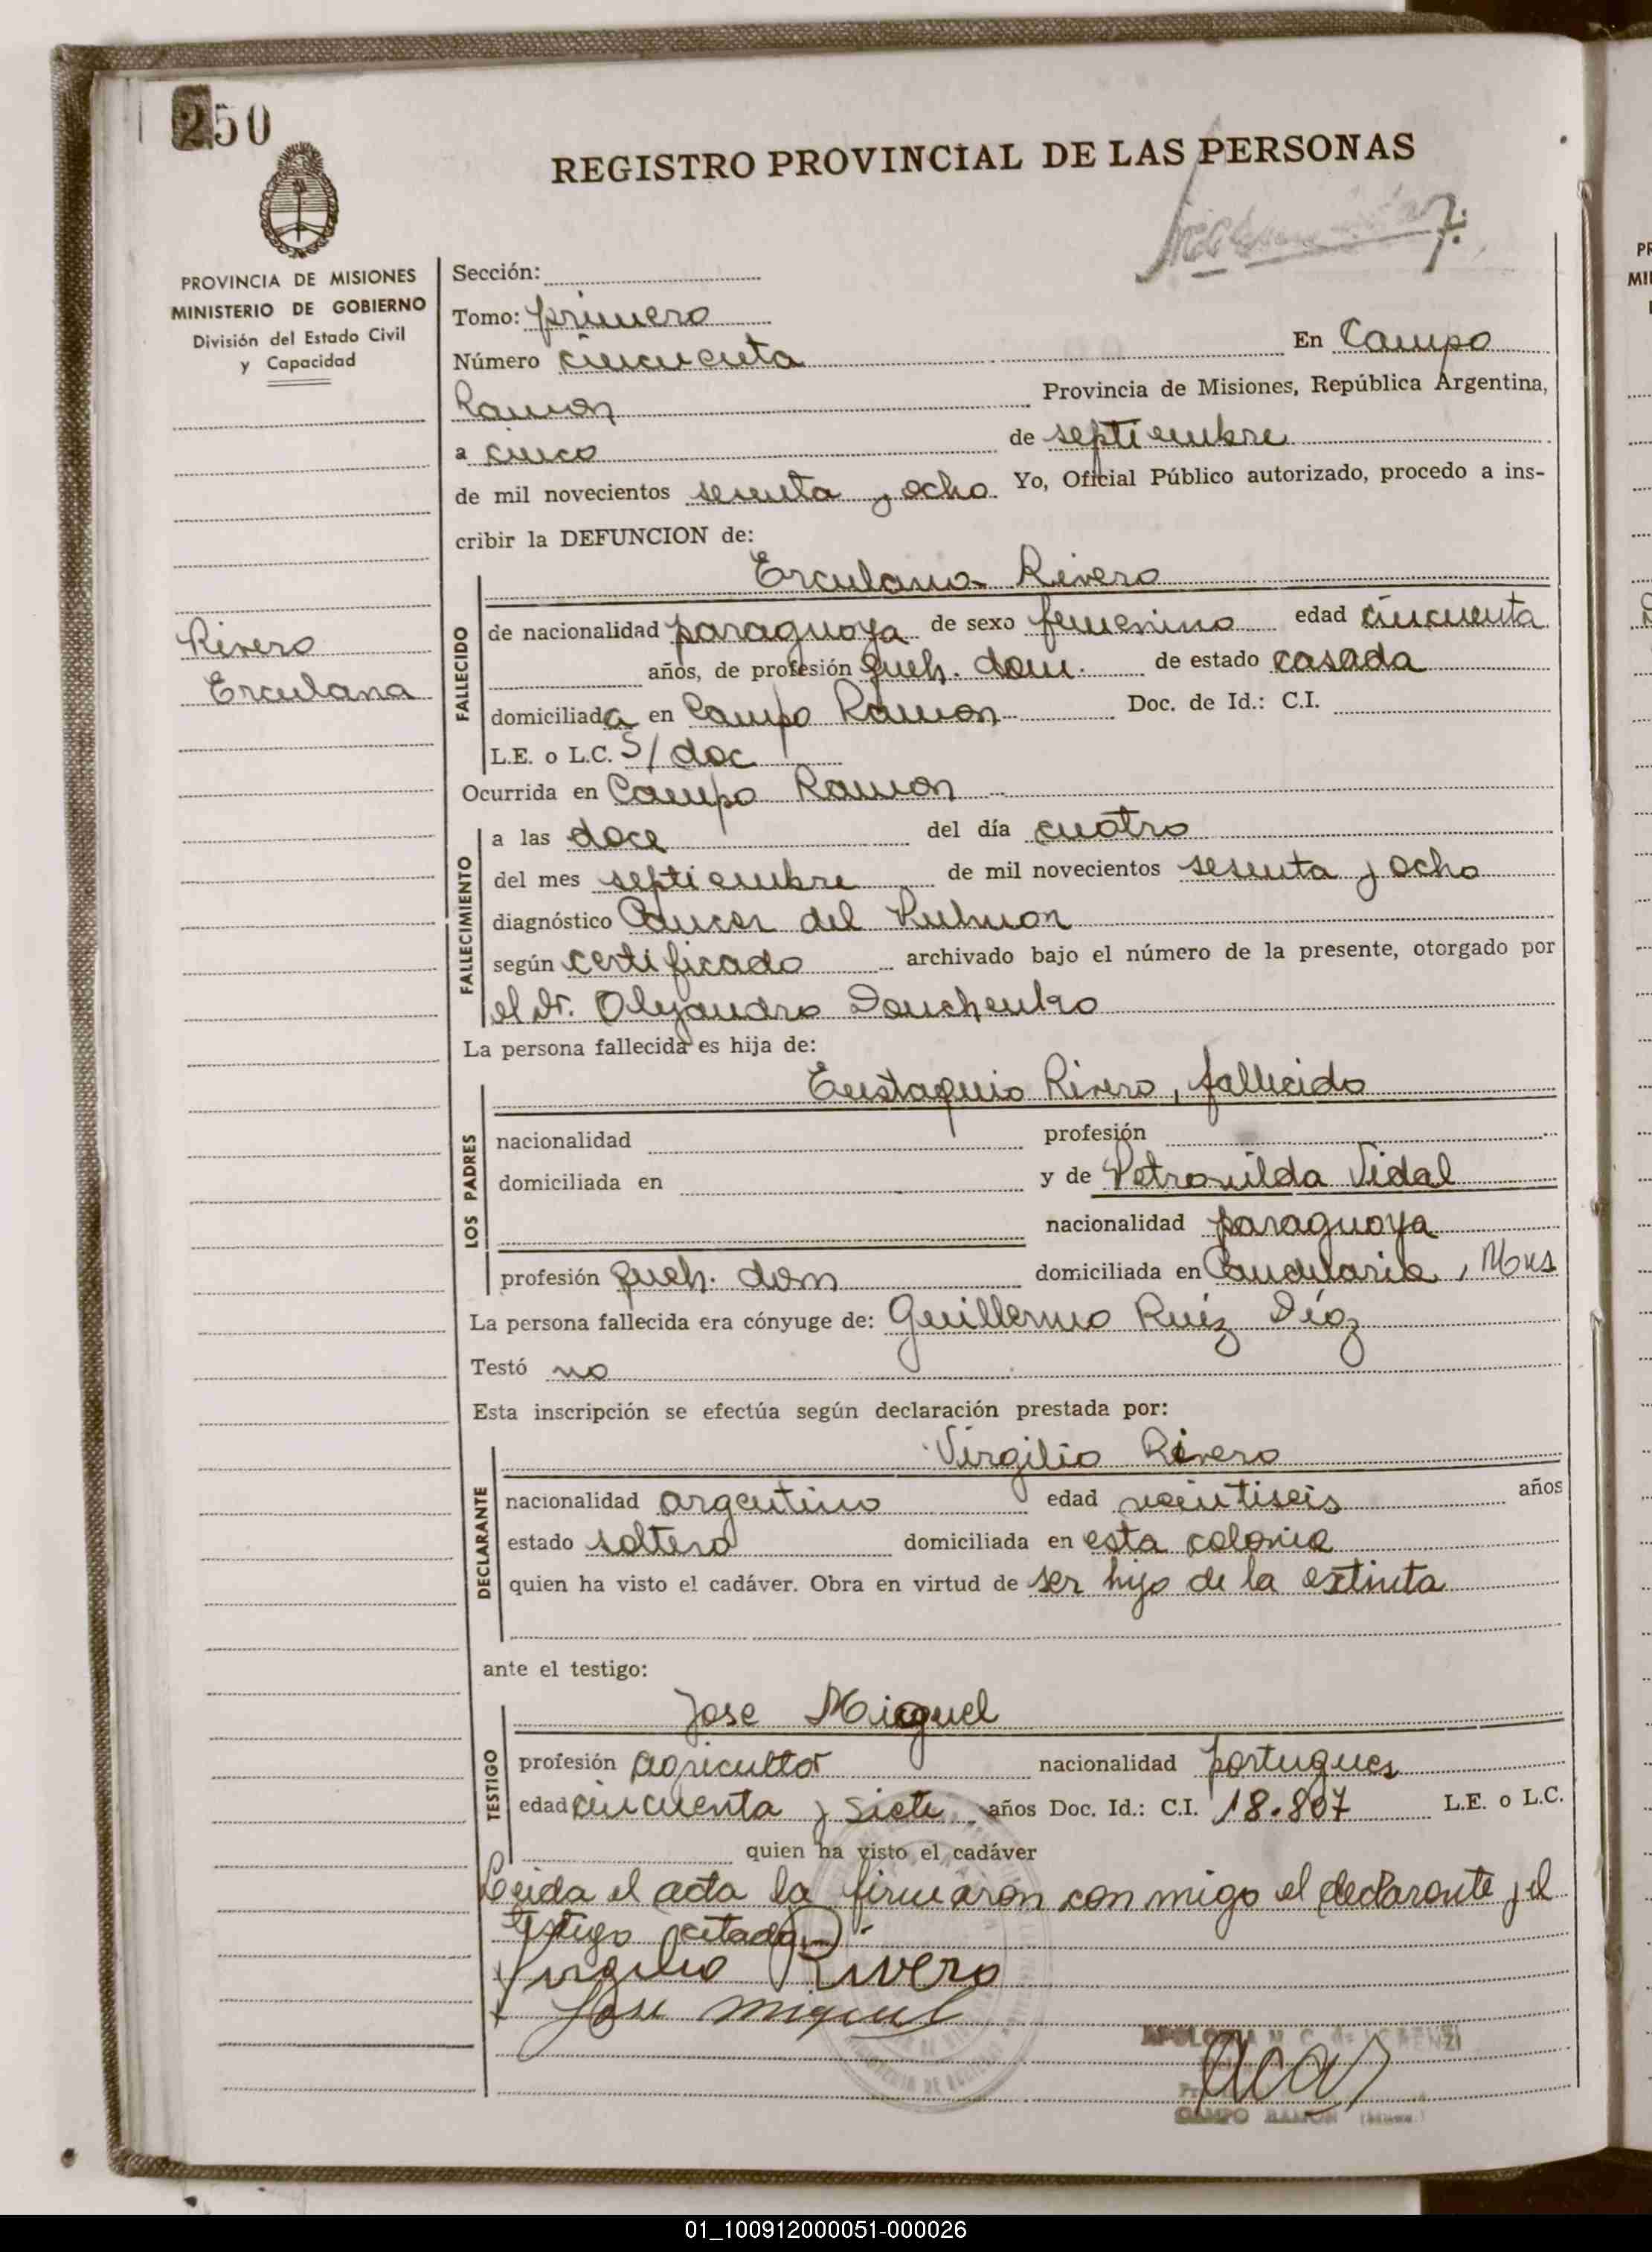 250
REGISTRO PROVINCIAL DE LAS PERSONAS
PROVINCIA DE MISIONES
MINISTERIO DE GOBIERNO
División del Estado Civil
y Capacidad
Rivero
Erculana
Sección:
Tomo: primero
Número cincuenta En Campo
Ramon Provincia de Misiones, República Argentina,
a cinco de septiembre
de mil novecientos sesenta y ocho Yo, Oficial Público autorizado, procedo a ins-
cribir la DEFUNCION de:
Erculana Rivero
FALLECIDO
de nacionalidad paraguaya de sexo femenino edad cincuenta
años, de profesión queh. dom. de estado casada
domiciliada en Campo Ramon Doc. de Id.: C.I.
L.E. o L.C. S/ doc
Ocurrida en Campo Ramon
FALLECIMIENTO
a las doce del día cuatro
del mes septiembre de mil novecientos sesenta y ocho
diagnóstico Cancer del Pulmon
según certificado archivado bajo el número de la presente, otorgado por
el Dr. Alejandro
La persona fallecida es hija de:
Eustaquio Rivero, fallecido
LOS PADRES
nacionalidad profesión
domiciliada en y de Petronilda Vidal
nacionalidad paraguaya
profesión queh. dom domiciliada en Candelaria, Mns
La persona fallecida era cónyuge de: Guillermo Ruiz Díaz
Testó no
Esta inscripción se efectúa según declaración prestada por:
Virgilio Rivero
DECLARANTE
nacionalidad argentino edad veintiseis años
estado soltero domiciliada en esta colonia
quien ha visto el cadáver. Obra en virtud de ser hijo de la extinta
ante el testigo:
Jose Miguel
TESTIGO
profesión agricultor nacionalidad portugues
edad cincuenta y siete años Doc. Id.: C.I. 18.807 L.E. o L.C.
quien ha visto el cadáver
Leida el acta la firmaron con migo el declarante y el
testigo citado
Virgilio Rivero
Jose Miguel
CAMPO RAMON
01_100912000051-000026